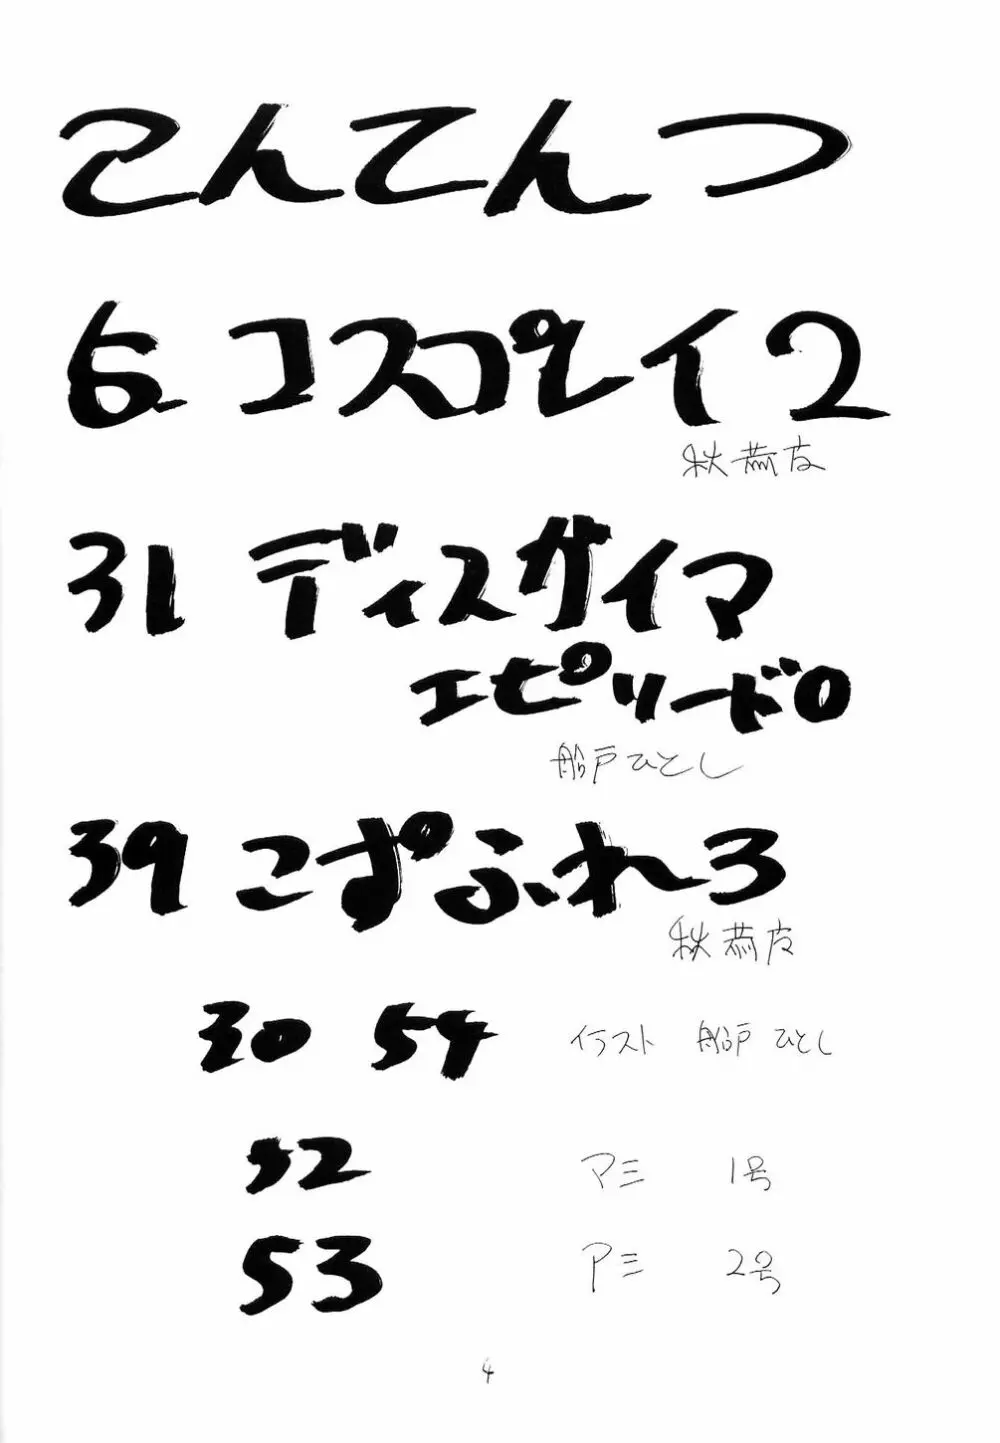 こんてんつ
5 コスプレイ2
秋恭皮
31 ディスサイマ
エピソード0
船戸ひとし
39 こすぷれ3
秋恭皮
30 54 イラスト 船戸ひとし
52 アミ 1号
53 アミ 2号
4